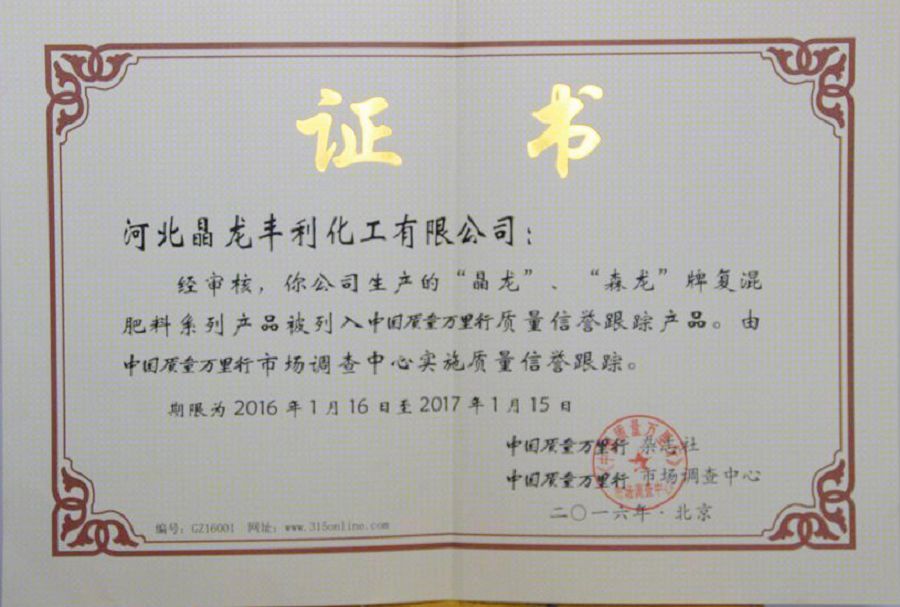 证 书
河北晶龙丰利化工有限公司：
经审核，你公司生产的“晶龙”、“森龙”牌复混
肥料系列产品被列入中国质量万里行质量信誉跟踪产品。由
中国质量万里行市场调查中心实施质量信誉跟踪。
期限为2016年1月16日至2017年1月15日
中国质量万里行 杂志社
中国质量万里行 市场调查中心
二〇一六年·北京
编号：GZ16001 网址：www.315online.com